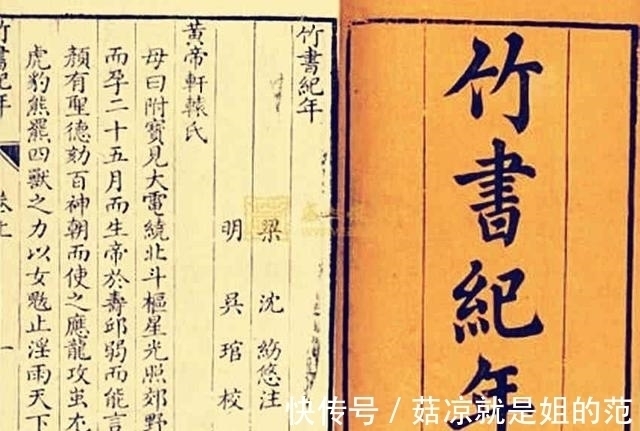 竹書紀年
竹書紀年
梁 沈 約附注
明 吳 琯 校
黃帝軒轅氏
母曰附寶見大電繞北斗樞星光照郊野
而孕二十五月而生帝於壽邱弱而能言
顏有聖德劾百神朝而使之應龍攻蚩尤
虎豹熊羆四獸之力以女魃止淫雨天下
竹書紀年 卷上 一
快传号 / 菇凉就是姐的范